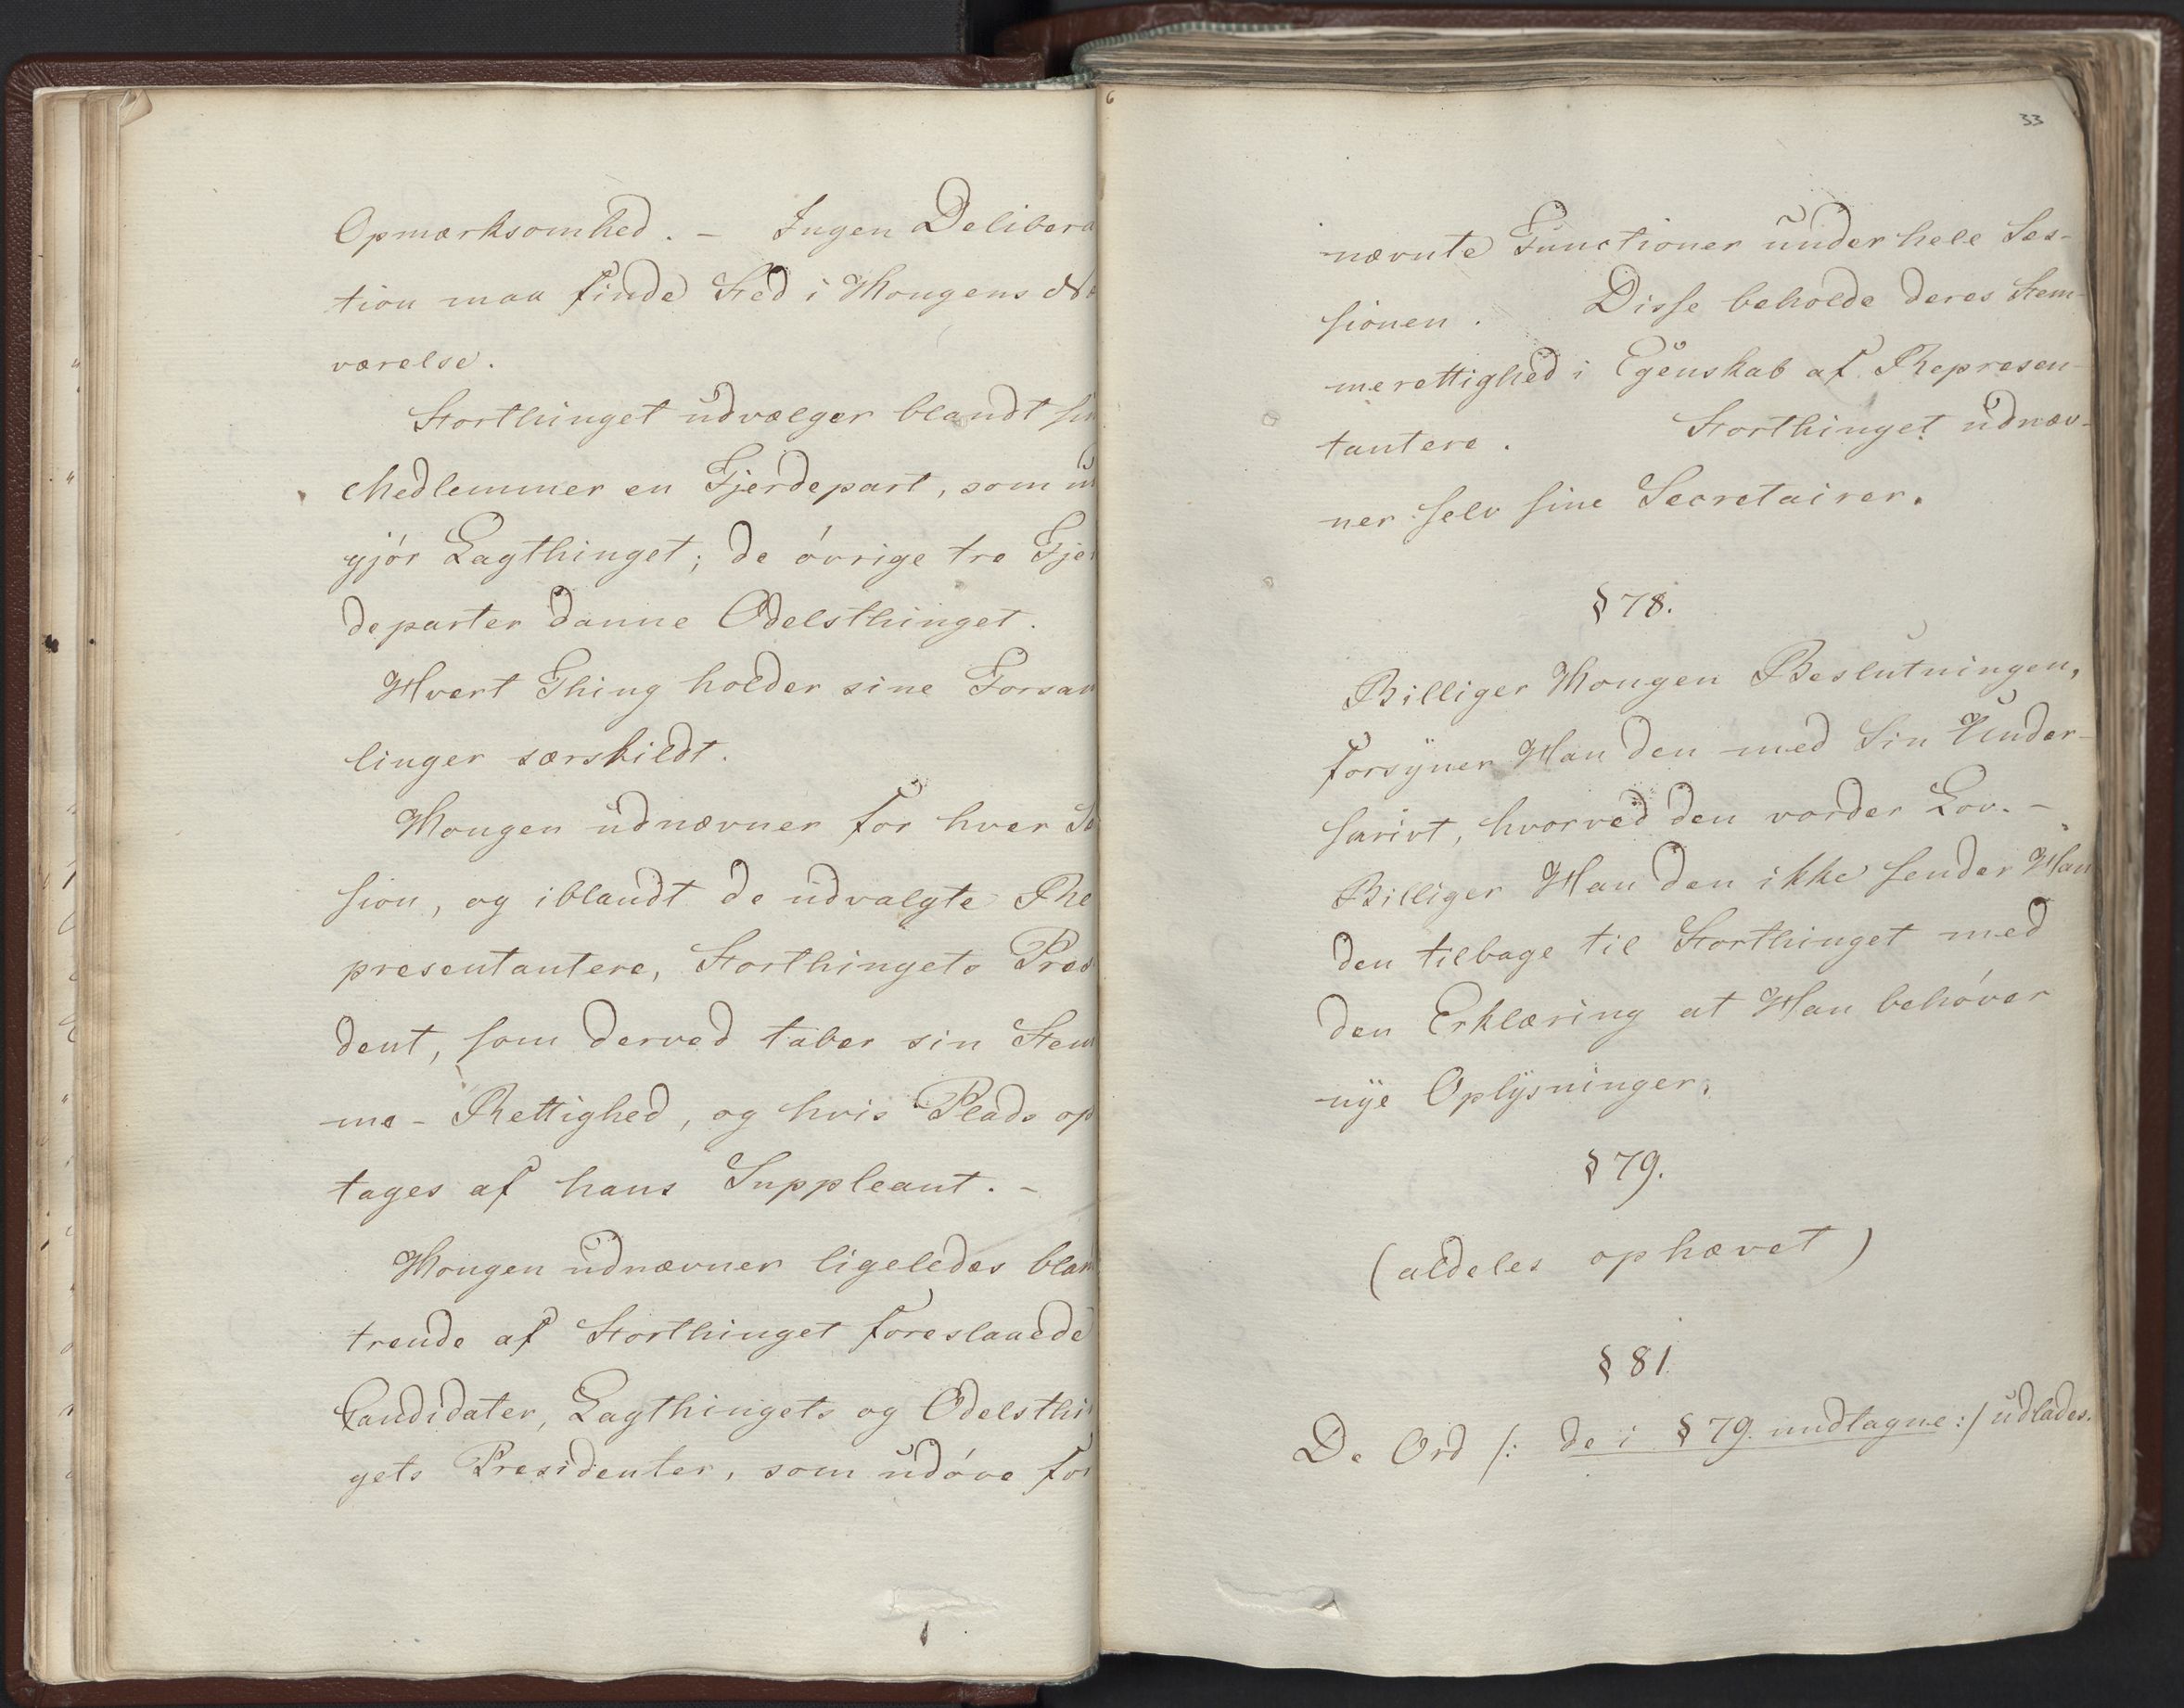 Opmærksomhed. – Ingen Delibera
tion maa finde Sted i Kongens Næ
værelse.
Storthinget udvælger blandt sin
Medlemmer en Fjerdepart, som u
gjör Lagthinget; de övrige tre Fjer
departer danne Odelsthinget.
Hvert Thing holder sine Forsam
linger særskildt.
Kongen udnævner for hver Se
sion, og iblandt de udvalgte Re
presentantere, Storthingets Presi
dent, som derved taber sin Stem
me-Rettighed, og hvis Plads op
tages af hans Suppleant. –
Kongen udnævner ligeledes blan
trende af Storthinget foreslaaede
Candidater, Lagthingets og Odelsthin
gets Presidenter, som udöve for
6
33
nævnte Functioner under hele Ses-
sionen. Disse beholde deres Stem-
merettighed i Egenskab af Represen-
tantere. Storthinget udnæv-
ner selv sine Secretairer.
§ 78.
Billiger Kongen Beslutningen,
forsÿner Han den med Sin Under-
skrivt, hvorved den vorder Lov. –
Billiger Han den ikke sender Han
den tilbage til Storthinget med
den Erklæring at Han behöver
nÿe Oplÿsninger.
§ 79.
(aldeles ophævet)
§ 81.
De Ord /: de i § 79. undtagne :/ udlades.